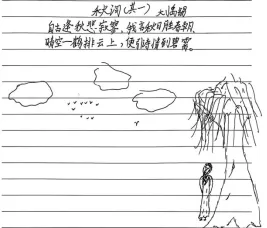 秋词(其一) 刘禹锡
自古逢秋悲寂寥,我言秋日胜春朝
晴空一鹤排云上,便引诗情到碧霄。